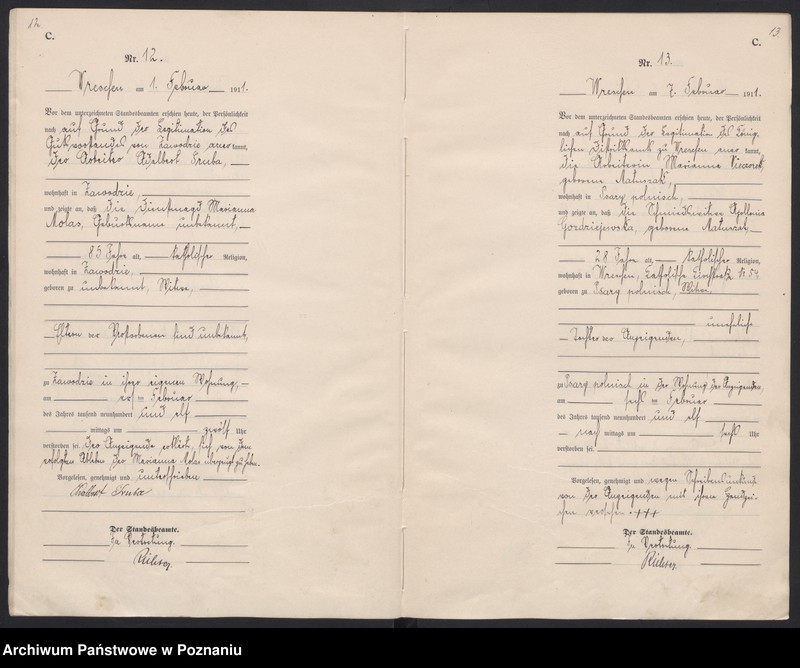 12
C.
Nr. 12.
Wreschen am 1. Februar 1911.
Vor dem unterzeichneten Standesbeamten erschien heute, der Persönlichkeit
nach auf Grund der Legitimation des
Gutsvorstandes von Zawodzie, aner kannt,
der Arbeiter Adalbert Sruba,
wohnhaft in Zawodzie,
und zeigte an, daß die Dienstmagd Marianna
Molas, Geburtsname unbekannt,
85 Jahre alt, katholischer Religion,
wohnhaft in Zawodzie,
geboren zu unbekannt, Witwe,
Eltern der Verstorbenen sind unbekannt,
zu Zawodzie in ihrer eigenen Wohnung,
am ersten Februar
des Jahres tausend neunhundert und elf
mittags um zwölf Uhr
verstorben sei. Der Anzeigende erklärt, sich von dem
erfolgten Ableben der Marianna Molas überzeugt zu haben.
Vorgelesen, genehmigt und unterschrieben
Der Standesbeamte.
In Vertretung.
13.
C.
Nr. 13.
Wreschen am 7. Februar 1911.
Vor dem unterzeichneten Standesbeamten erschien heute, der Persönlichkeit
nach auf Grund der Legitimation des König-
lichen Distriktsamts zu Wreschen aner kannt,
die Arbeiterin Marianna
geborene
wohnhaft in Psary polnisch,
und zeigte an, daß die Schmiedswitwe Apollonia
geborene
28 Jahre alt, katholischer Religion,
wohnhaft in Wreschen,
geboren zu Psary polnisch, Witwe
uneheliche
Tochter der Anzeigenden,
zu Psary polnisch in der Wohnung der Anzeigenden,
am sechs ten Februar
des Jahres tausend neunhundert und elf
nach mittags um sechs Uhr
verstorben sei.
Vorgelesen, genehmigt und wegen Schreibensunkunde
von der Anzeigenden mit ihrem Handzei-
chen versehen. +++
Der Standesbeamte.
In Vertretung.
Archiwum Państwowe w Poznaniu